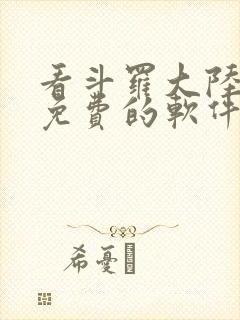 看斗羅大陸
免費的軟件
希憂